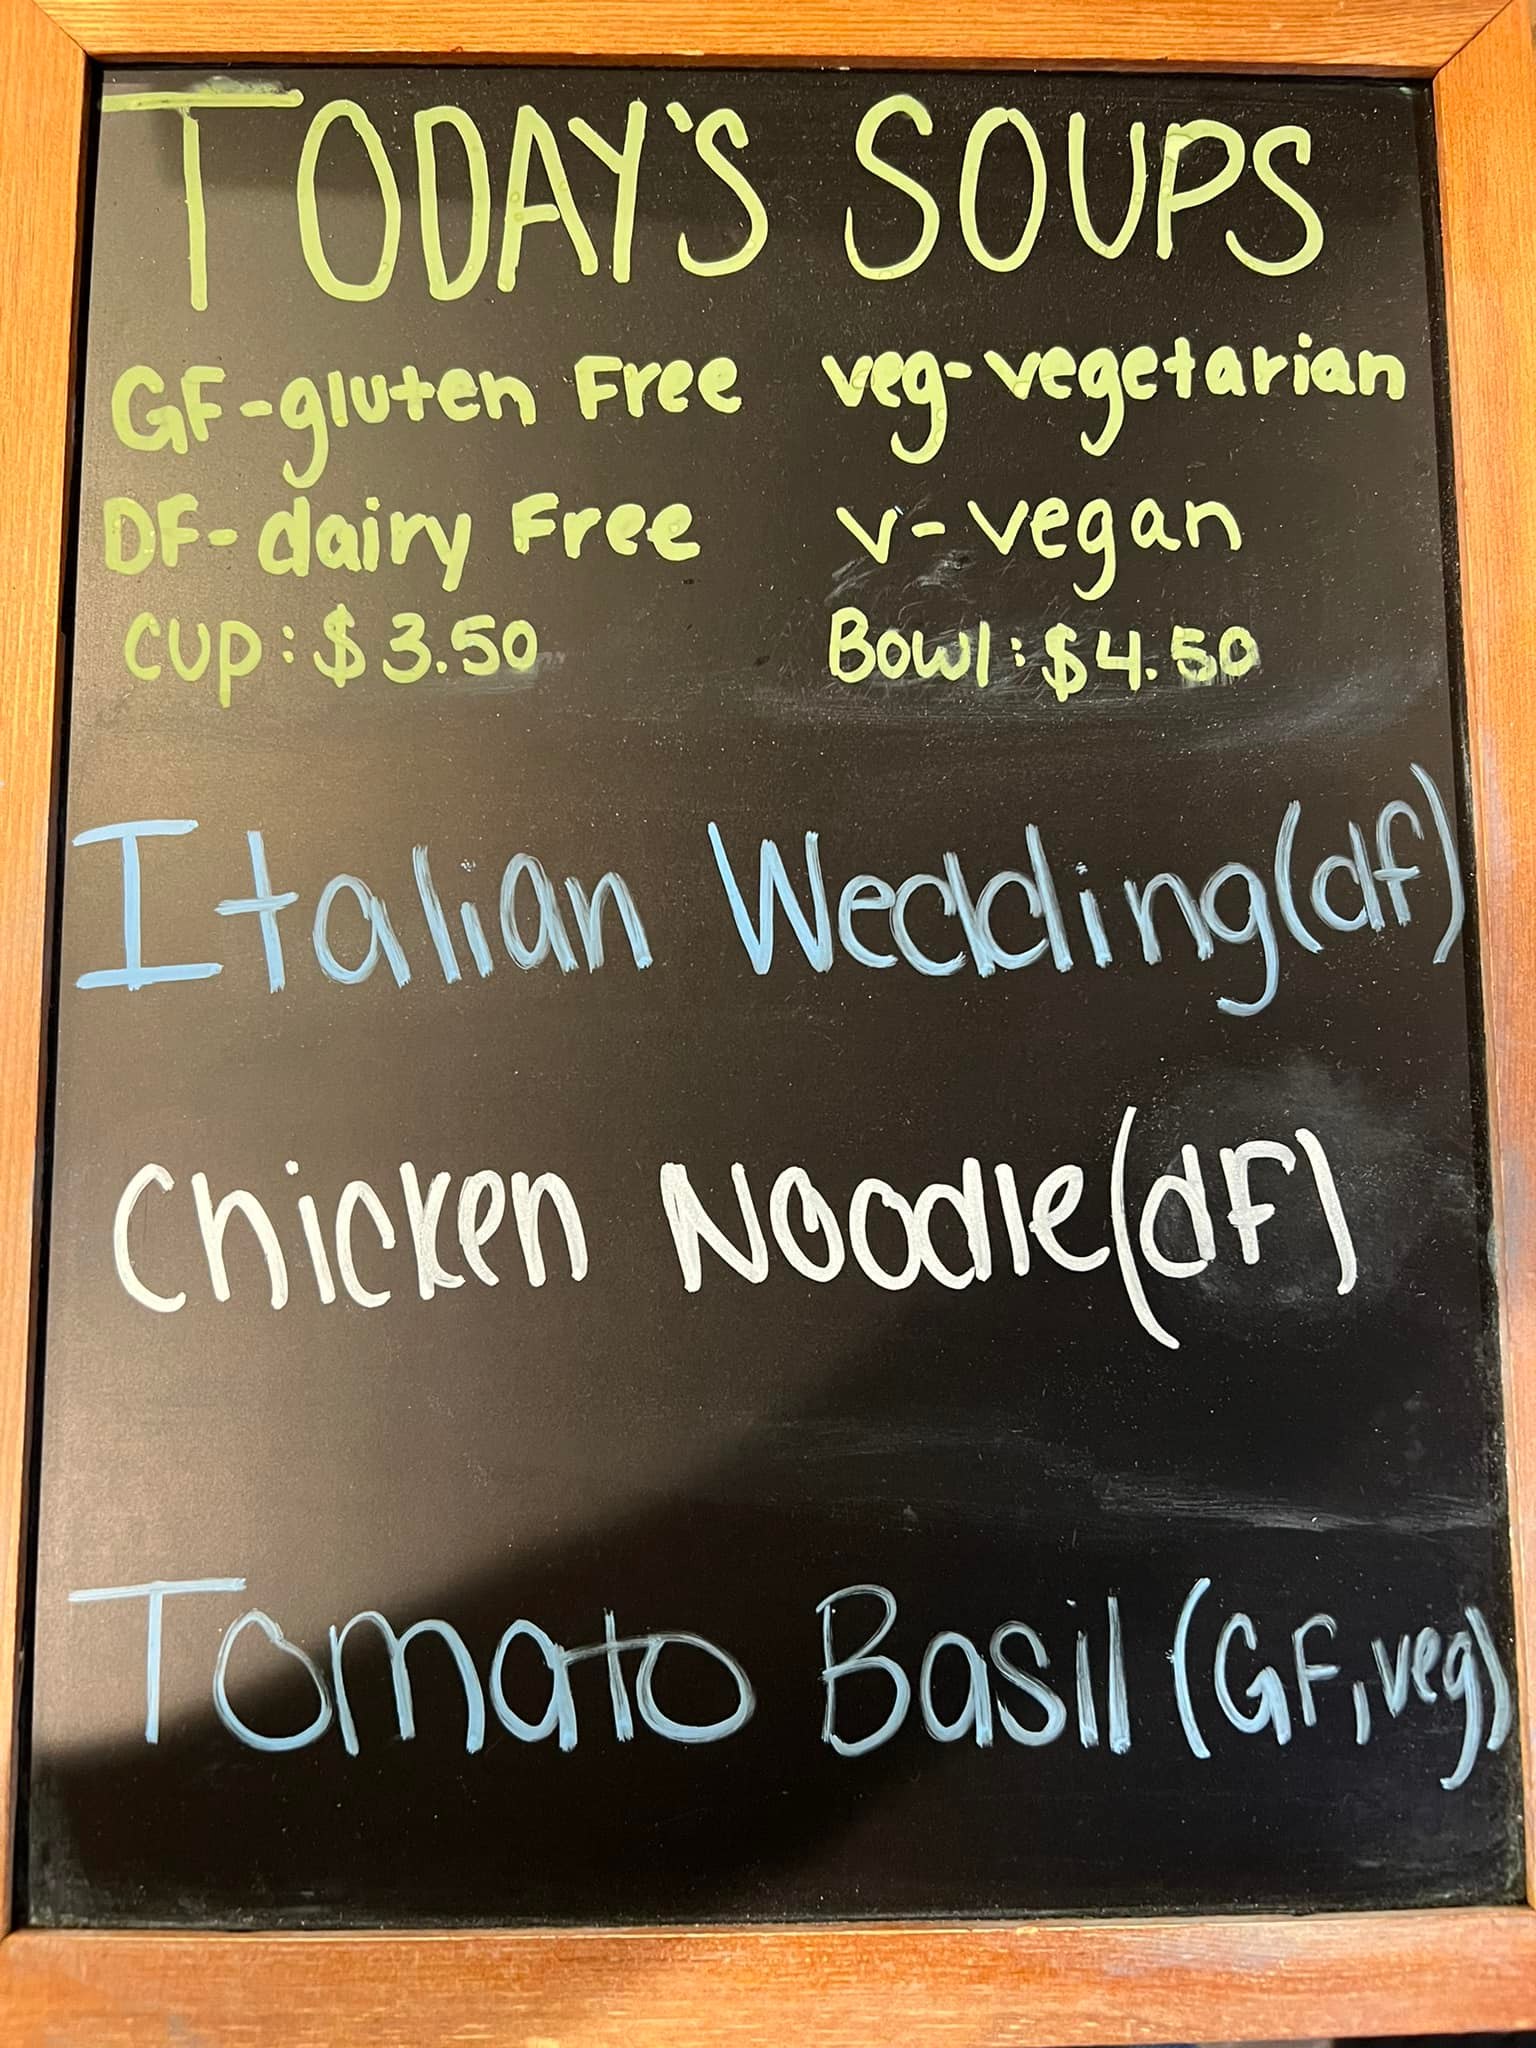 TODAY'S SOUPS
GF-gluten Free veg-vegetarian
DF-dairy Free v-vegan
Cup: $3.50 Bowl: $4.50
Italian Wedding(df)
Chicken Noodle(dF)
Tomato Basil (GF, veg)